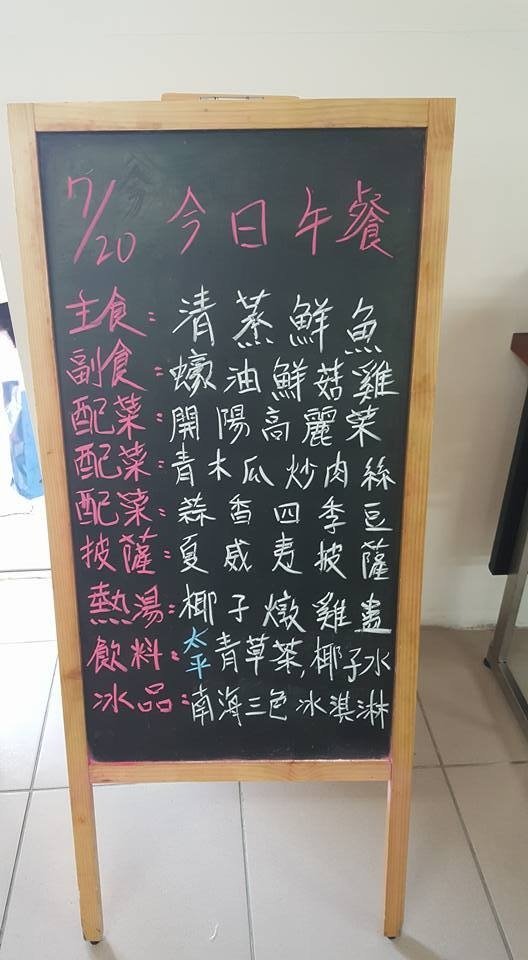 7/20 今日午餐
主食：清蒸鮮魚
副食：蠔油鮮菇雞
配菜：開陽高麗菜
配菜：青木瓜炒肉絲
配菜：蒜香四季豆
披薩：夏威夷披薩
熱湯：椰子燉雞盅
飲料：太平青草茶,椰子水
冰品：南海三色冰淇淋